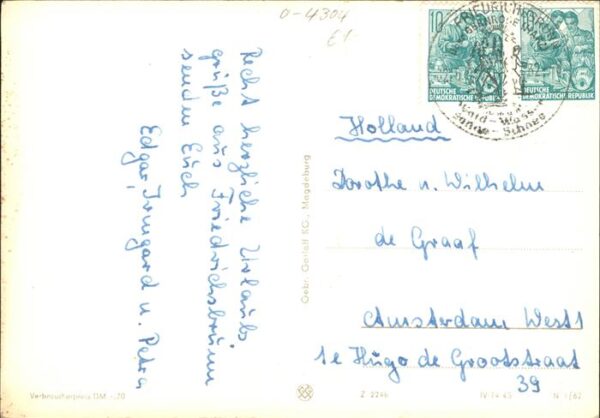 0-4304
£1
Recht herzliche Urlaubs
grüße aus Friedrichsbrunn
senden Euch
Edgar, Irmgard u. Petra
Gebr. Garloff KG., Magdeburg
10
DEUTSCHE
DEMOKRATISCHE REPUBLIK
5
10
DEUTSCHE
DEMOKRATISCHE REPUBLIK
5
FRIEDRICHSBRUNN
Wald - Wasser
Sonne - Schnee
Holland
Dorothe u. Wilhelm
de Graaf
Amsterdam West 1
1e Hugo de Grootstraat
39
Verbraucherpreis DM -,20
IV/14/45